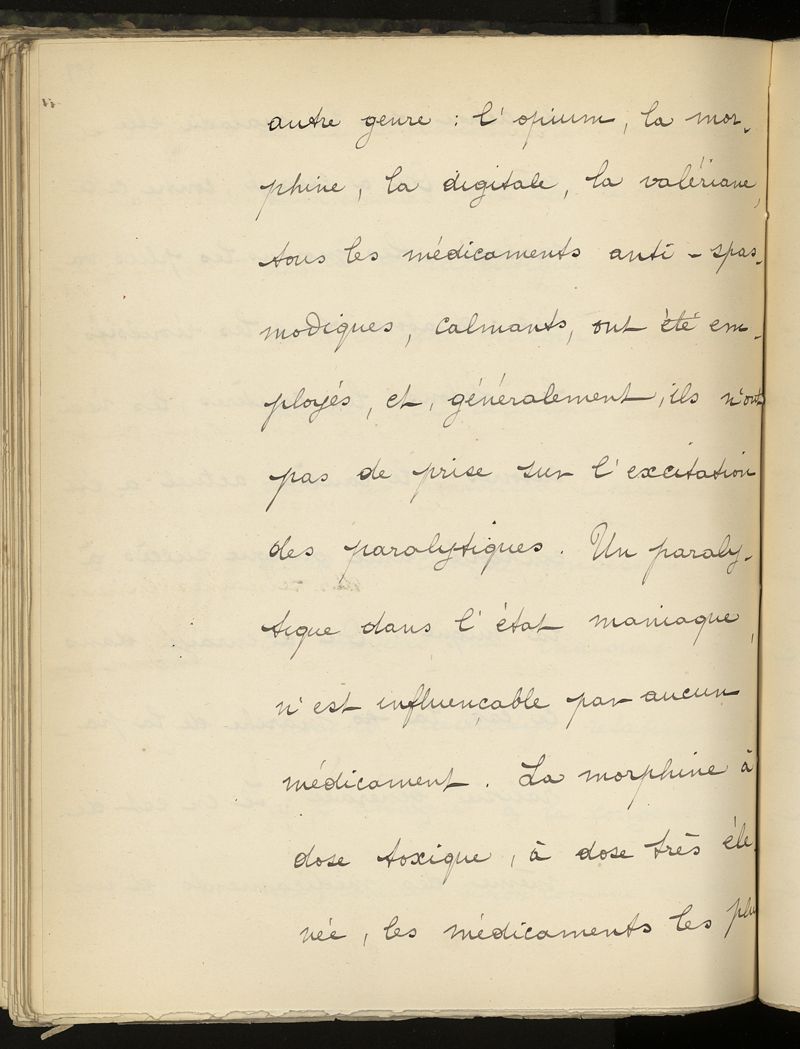 autre genre : l'opium, la mor-
phine, la digitale, la valériane,
tous les médicaments anti-spas-
modiques, calmants, ont été em-
ployés, et, généralement, ils n'ont
pas de prise sur l'excitation
des paralytiques. Un paraly-
tique dans l'état maniaque,
n'est influençable par aucun
médicament. La morphine à
dose toxique, à dose très éle-
vée, les médicaments les plus